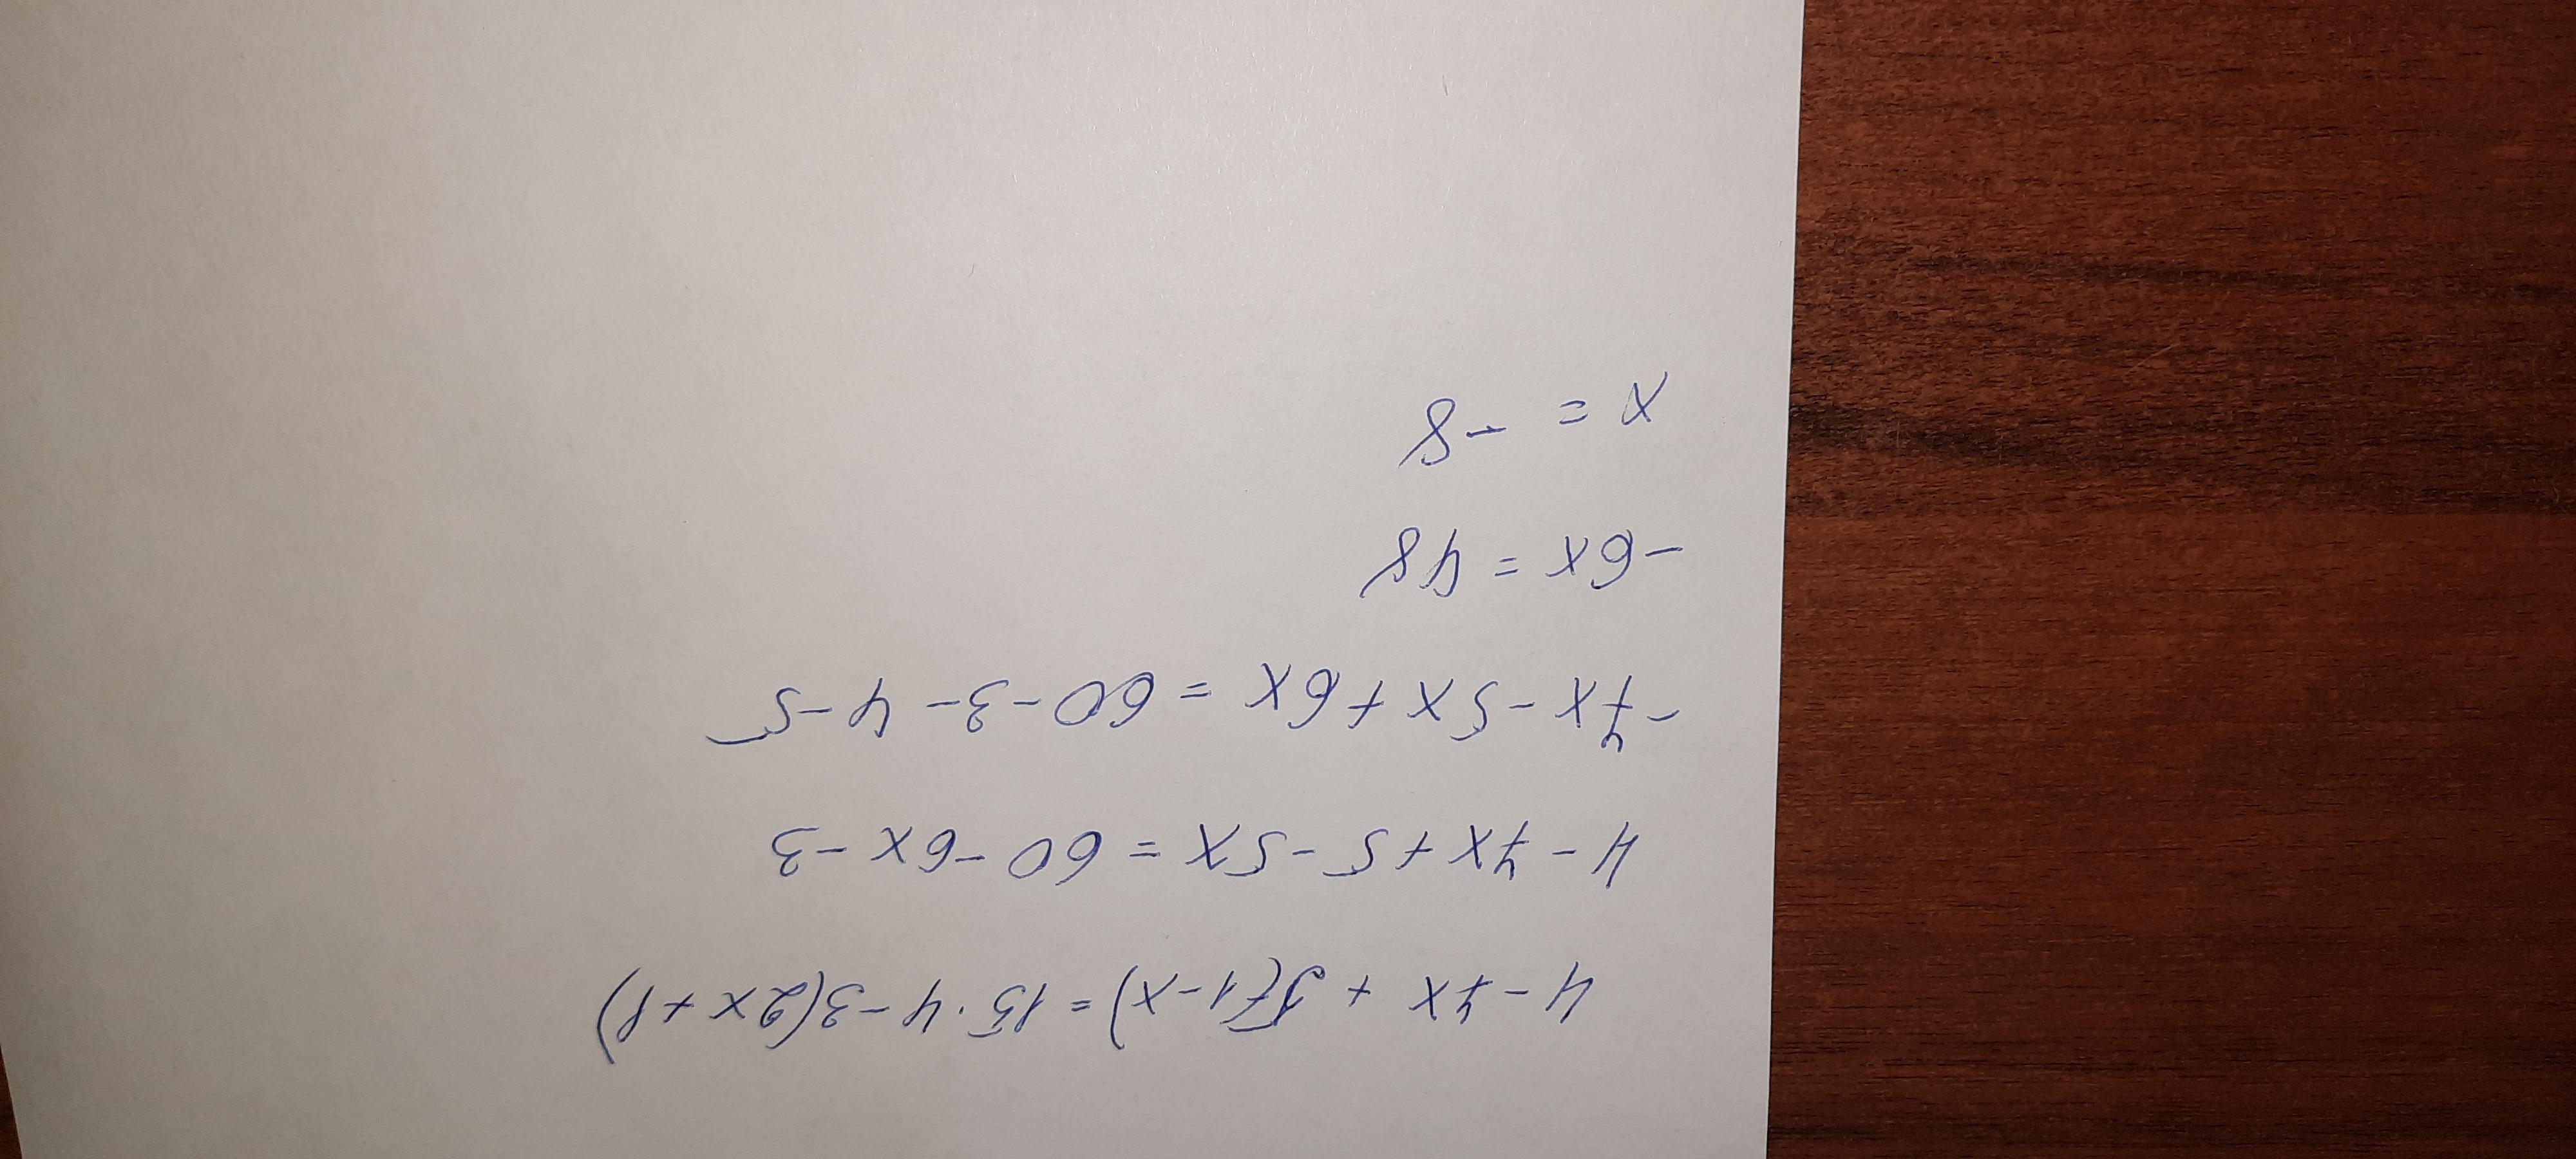 4 - 7x + 5(1-x) = 15·4 - 3(2x+1)
4 - 7x + 5 - 5x = 60 - 6x - 3
-7x - 5x + 6x = 60 - 3 - 4 - 5
-6x = 48
x = -8